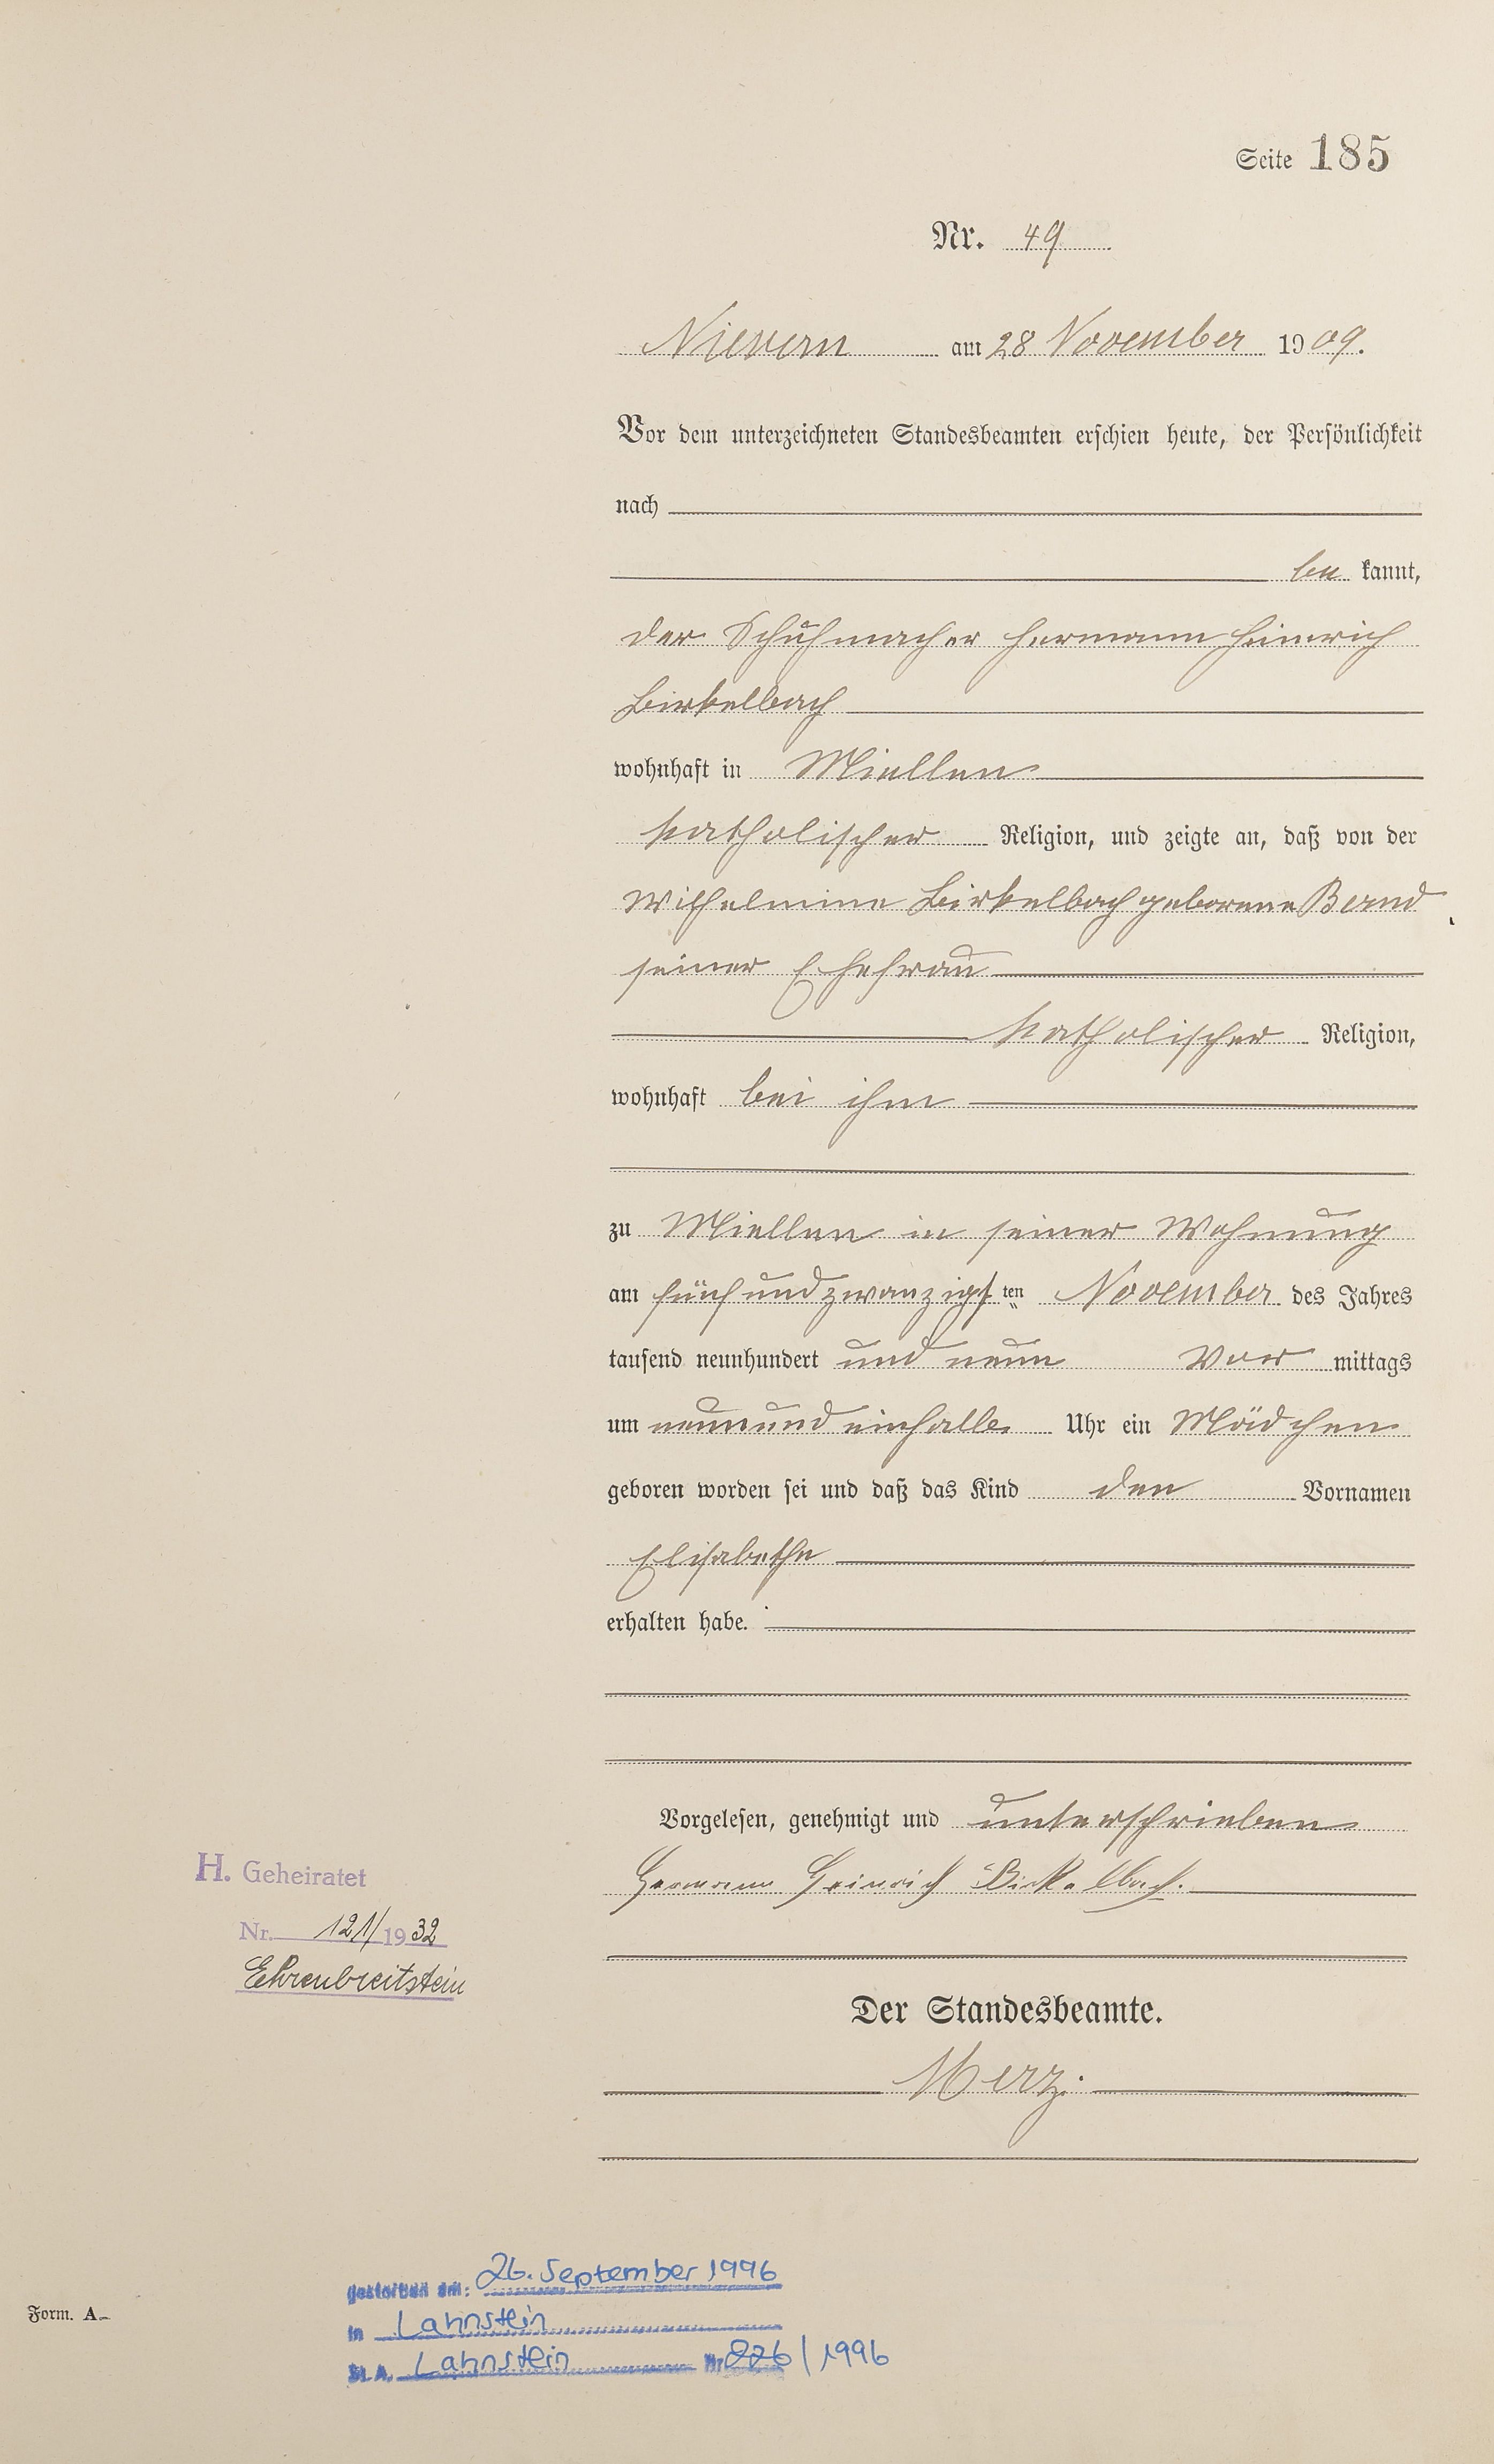 Seite 185
Nr. 49
Nievern am 28 November 1909.
Vor dem unterzeichneten Standesbeamten erschien heute, der Persönlichkeit
nach
be kannt,
der Schuhmacher Hermann Heinrich
Birkelbach
wohnhaft in Miellen
katholischer Religion, und zeigte an, daß von der
Wilhelmine Birkelbach geborene Bernd
seiner Ehefrau
katholischer Religion,
wohnhaft bei ihm
zu Miellen in seiner Wohnung
am fünfundzwanzigsten November des Jahres
tausend neunhundert und neun Vor mittags
um neunundeinhalb Uhr ein Mädchen
geboren worden sei und daß das Kind den Vornamen
Elisabetha
erhalten habe.
Vorgelesen, genehmigt und unterschrieben
Hermann Heinrich Birkelbach.
H. Geheiratet
Nr. 121/1932
Ehrenbreitstein
Der Standesbeamte.
Merz.
gestorben am: 26. September 1996
in Lahnstein
St. A. Lahnstein Nr 226/1996
Form. A.